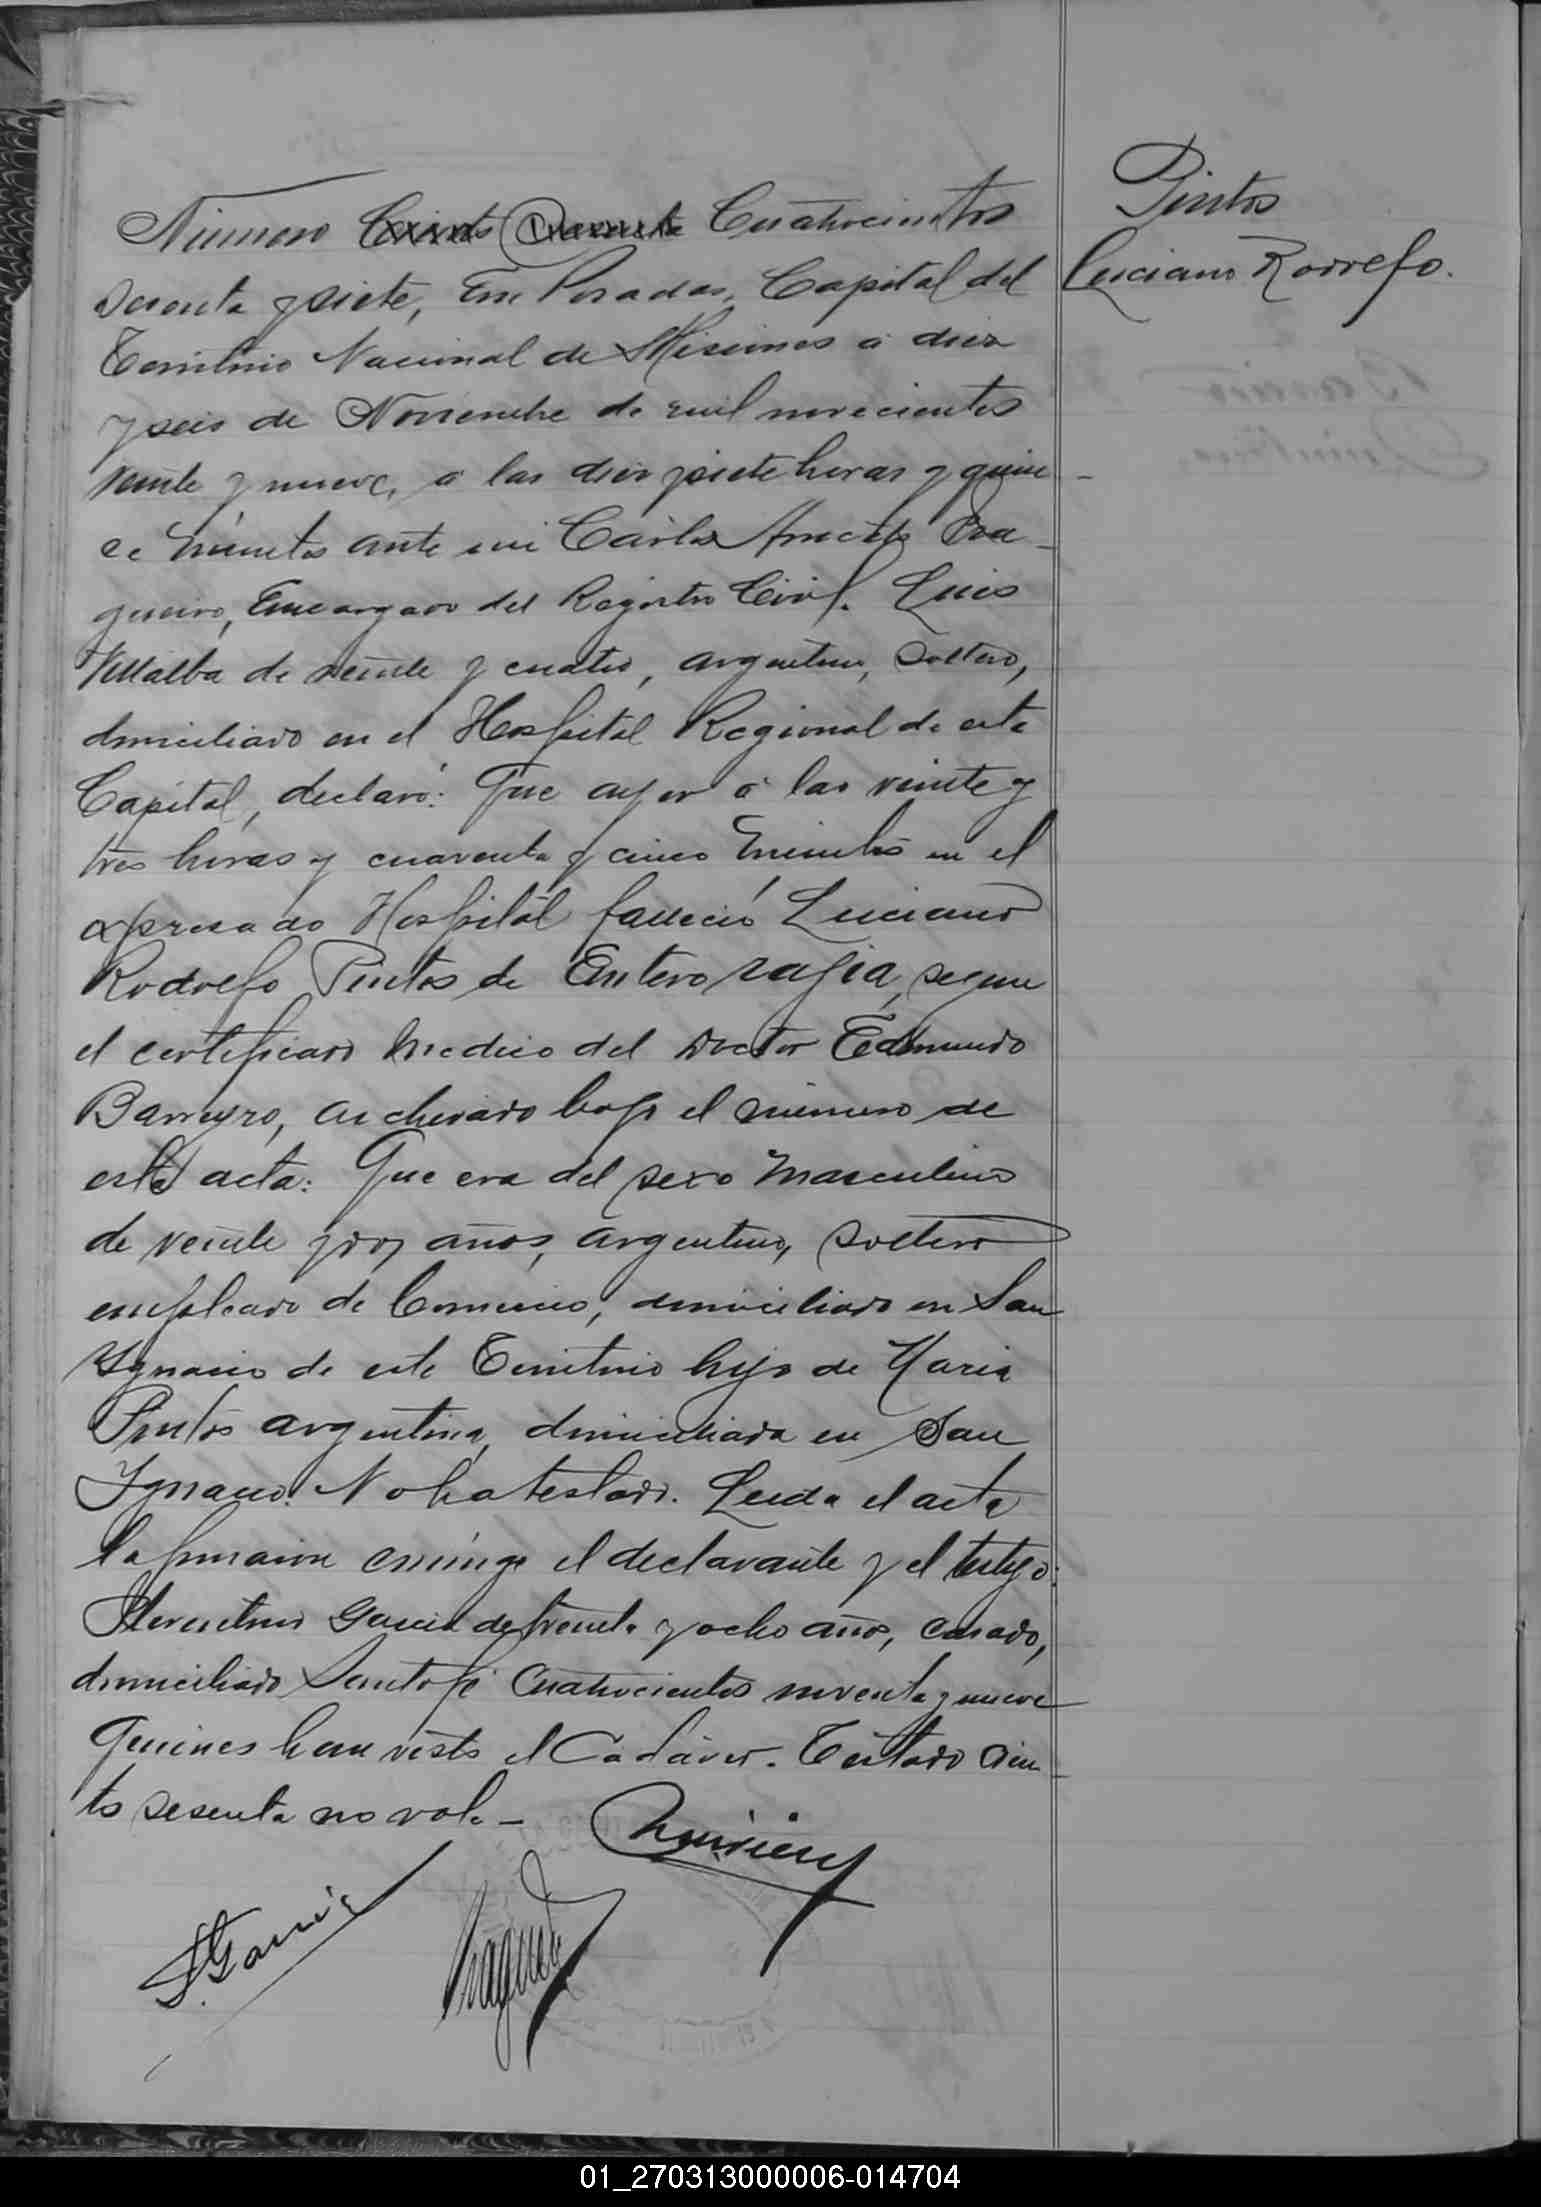 Pintos
Luciano Rodolfo.
Número Ciento Sesenta Cuatrocientos
sesenta y siete, En Posadas, Capital del
Territorio Nacional de Misiones a diez
y seis de Noviembre de mil novecientos
veinte y nueve, a las diez y siete horas y quin
ce minutos ante mi Carlos
Encargado del Registro Civil. Luis
Villalba de veinte y cuatro, argentino, soltero,
domiciliado en el Hospital Regional de esta
Capital, declaró: Que ayer a las veinte y
tres horas y cuarenta y cinco minutos en el
expresado Hospital falleció Luciano
Rodolfo Pintos de Enterorajia, segun
el certificado medico del Doctor Edmundo
Barreyro, archivado bajo el número de
esta acta: Que era del sexo masculino
de veinte y dos años, argentino, soltero
empleado de Comercio, domiciliado en San
Ygnacio de este Territorio hijo de Maria
Pintos argentina, domiciliada en San
Ygnacio. No ha testado. Leida el acta
la firmaron conmigo el declarante y el testigo:
Garcia de treinta y ocho años, casado,
domiciliado Santa fé cuatrocientos noventa y nueve
Quienes han visto el Cadáver. Testado cien
to sesenta no vale –
S. Garcia
01_270313000006-014704